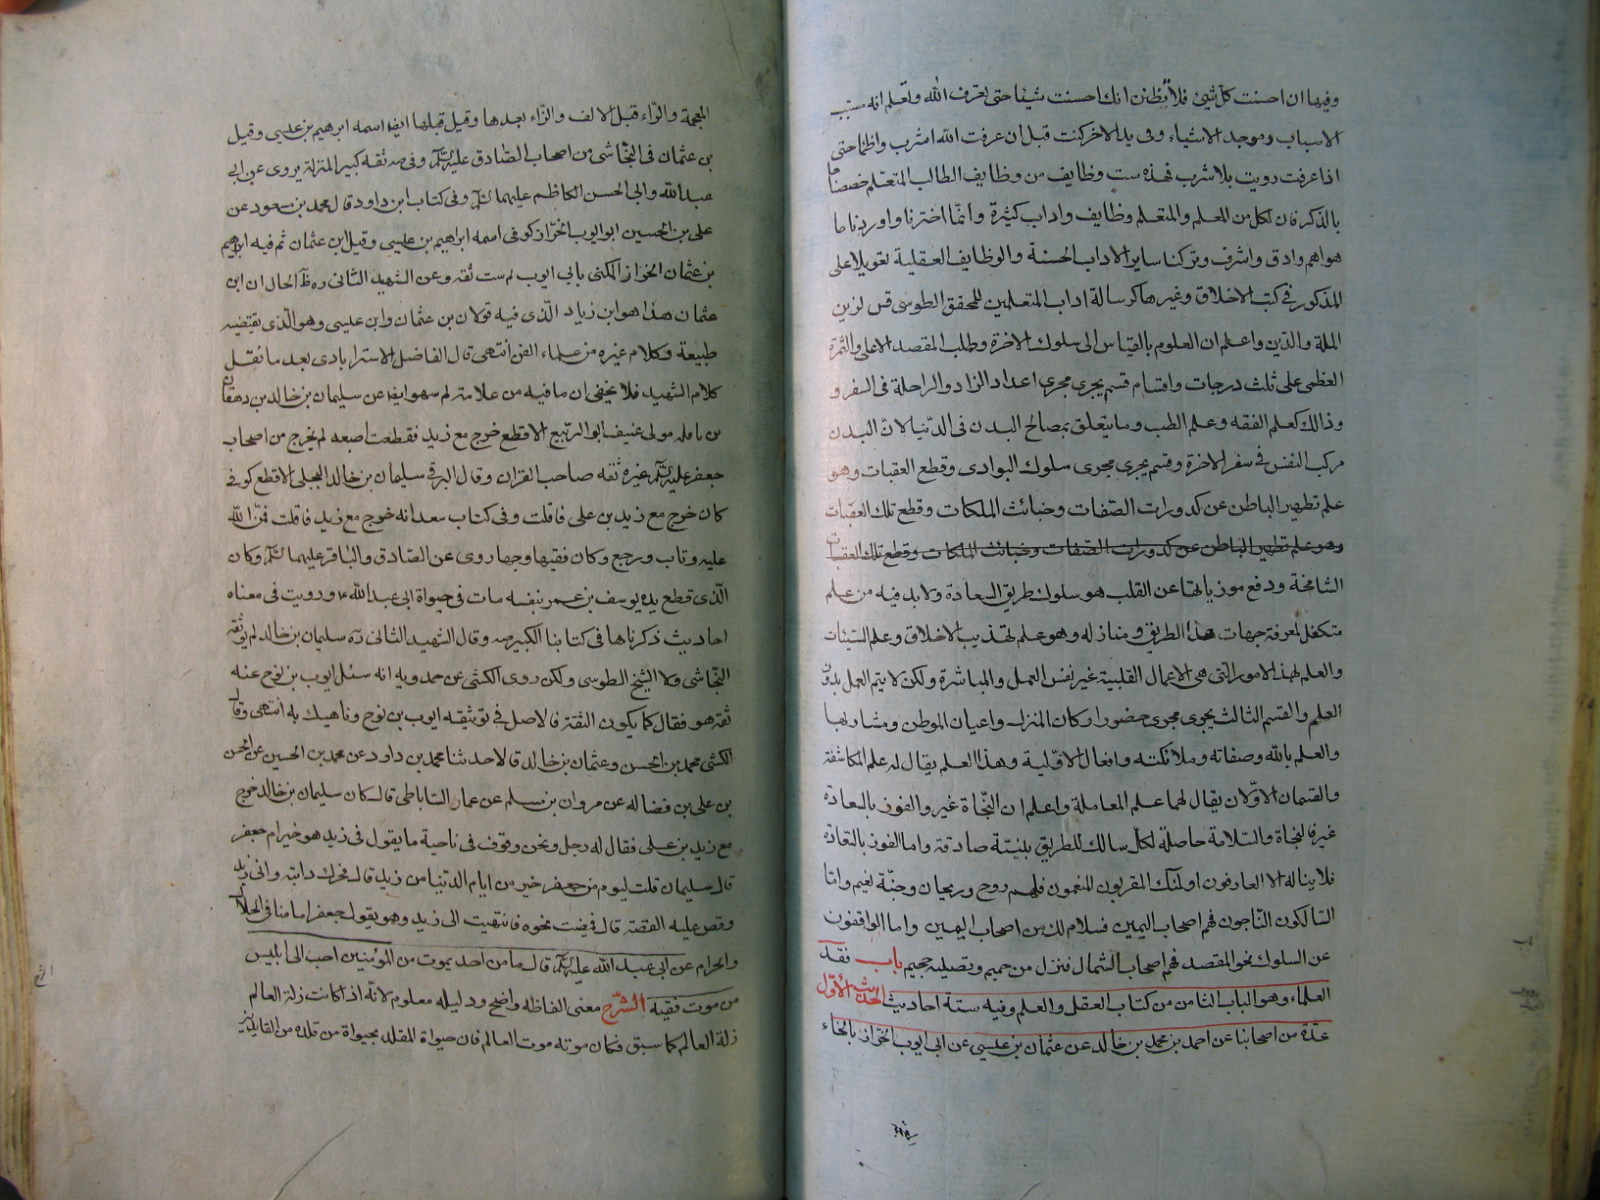 وفيها ان احسنت كل شيئ فلا تظنن انك احسنت شيئا حتى تعرف الله وتعلم انه مسبب
الاسباب وموجد الاشياء وفى يد الاخر كنت قبل ان عرفت الله اشرب واظما حتى
اذا عرفت رويت بلا شرب فهذه ست وظايف من وظايف الطالب المتعلم خصصناها
بالذكر فان لكل من المعلم والمتعلم وظايف واداب كثيرة وانما اخترنا واوردنا ما
هو اهم وادق واشرف وتركنا ساير الاداب الحسنة والوظايف العقلية تعويلا على
المذكور فى كتب الاخلاق وغيرها كرسالة اداب المتعلمين للمحقق الطوسى قس لزين
الملة والدين واعلم ان العلوم بالقياس الى سلوك الاخرة وطلب المقصد الاعلى والثمرة
العظمى على ثلث درجات واقسام قسم يجرى مجرى اعداد الزاد والراحلة فى السفر و
وذالك كعلم الفقه وعلم الطب وما يتعلق بمصالح البدن فى الدنيا لان البدن
مركب النفس فى سفر الاخرة وقسم يجرى مجرى سلوك البوادى وقطع العقبات وهو
علم تطهير الباطن عن كدورات الصفات وخبائث الملكات وقطع تلك العقبات
وهو علم تطهير الباطن عن كدورات الصفات وخبائث الملكات وقطع تلك العقبات
الشامخة ودفع موذياتها عن القلب هو سلوك طريق السعادة ولا بد فيه من علم
متكفل لمعرفة جهات هذا الطريق ومنازله وهو علم تهذيب الاخلاق وعلم السيئات
والعلم لهذا الامور التى هى الاعمال القلبية غير نفس العمل والمباشرة ولكن لا يتم العمل بدون
العلم والقسم الثالث يجرى مجرى حضور اركان المنزل واعيان الموطن ومشاولها
والعلم بالله وصفاته وملائكته وافعال الاولية وهذا العلم يقال له علم المكاشفة
والقسمان الاولان يقال لهما علم المعاملة واعلم ان النجاة غير والفوز بالسعادة
غير فالنجاة والسلامة حاصلة لكل سالك للطريق بلنيته صادقة واما الفوز بالسعادة
فلا يناله الا العارفون اولئك المقربون المنعمون فلهم روح وريحان وجنة نعيم واما
السالكون الناجون فهم اصحاب اليمين فسلام لك من اصحاب اليمين واما الواقفون
عن السلوك نحو المقصد فهم اصحاب الشمال فنزل من حميم وتصلية جحيم باب فقد
العلماء وهو الباب الثامن من كتاب العقل والعلم وفيه ستة احاديث الحديث الأول
عدة من اصحابنا عن احمد بن محمد بن خالد عن عثمان بن عيسى عن ابى ايوب الخزاز بالخاء
المعجمة والراء قبل الالف والزاء بعدها وقيل قبلها ايضا اسمه ابرهيم بن عيسى وقيل
بن عثمان فى النجاشى من اصحاب الصادق عليه السلم وفى ثقه كبير المنزلة يروى عن ابى
عبد الله وابى الحسن الكاظم عليهما السلم وفى كتاب ابن داود قال محمد بن مسعود عن
على بن الحسين ابو ايوب الخزاز كوفى اسمه ابراهيم بن عيسى وقيل ابن عثمان ثم فيه ابرهيم
بن عثمان الخزاز المكنى بابى ايوب ثقه وعن الشهيد الثانى ره الحال ان ابن
عثمان هذا هو ابن زياد الذى فيه قولان بن عثمان وابن عيسى وهو الذى يقتضيه
طبيعة وكلام غيره من علماء الفن انتهى قال الفاضل الاسترابادى بعد ما نقل
كلام الشهيد فلا يخفى ان ما فيه من سهو ايضا عن سليمان بن خالد بن دهقان
بن نافله مولى عفيف ابو الربيع الاقطع خرج مع زيد فقطعت اصبعه لم يخرج من اصحاب
جعفر عليه السلم غيره ثقه صاحب القران وقال البرقى سليمان بن خالد البجلى الاقطع كوفى
كان خرج مع زيد بن على فافلت وفى كتاب سعد انه خرج مع زيد فافلت فمن الله
عليه وتاب ورجع وكان فقيها وجها روى عن الصادق والباقر عليهما السلم وكان
الذى قطع يده يوسف بن عمر بنفسه مات فى حيوة ابى عبد الله ورويت فى معناه
احاديث ذكرناها فى كتابنا الكبير وقال الشهيد الثانى ره سليمان بن خالد لم يوثقه
النجاشى ولا الشيخ الطوسى ولكن روى الكشى عن حمدويه انه سئل ايوب بن نوح عنه
ثقة هو فقال كما يكون الثقة فالاصل فى توثيقه ايوب بن نوح وناهيك به انتهى وقال
الكشى محمد بن الحسن وعثمان بن خالد قالا حدثنا محمد بن داود عن محمد بن الحسين عن الحسن
بن على بن فضاله عن مروان بن مسلم عن عمار الساباطى قال كان سليمان بن خالد خرج
مع زيد بن على فقال له رجل ونحن وقوف فى ناحية ما يقول فى زيد هو خير ام جعفر
قال سليمان قلت ليوم من جعفر خير من ايام الدنيا من زيد قال فحرك دابته واتى زيد
وقص عليه القصة قال فمضيت نحوه فانتهيت الى زيد وهو يقول جعفر امامنا فى الحلال
والحرام عن ابى عبد الله عليه السلم قال ما من احد يموت من المؤمنين احب الى ابليس
من موت فقيه الشرح معنى الفاظه واضح ودليله معلوم لانه اذا كانت زلة العالم
زلة العالم كما سبق فكان موته موت العالم فان حيوة المقلد بحيوة من قلده من القايلين